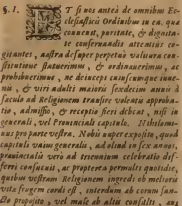 §. 1. ET si nos antea de omnibus Ec-
clesiasticis Ordinibus in ea, qua
convenit, puritate, & dignita-
te conservandis attentius co-
gitantes, nostra desuper perpetuo valitura con-
stitutione statuerimus, & ordinaverimus, ac
prohibuerimus, ne deinceps cuiuscunque iuve-
nis, & viri adulti maioris sexdecim annis à
saeculo ad Religionem transire volentis approba-
tio, admissio, & receptio fieri debeat, nisi in
generali, vel Provinciali capitulo. Nihilomi-
nus pro parte vestra, Nobis nuper exposito, quod
capituli vaini generalis, ad aliud in sex annos,
provincialis verò ad triennium celebratio dif-
ferri consuevit, ac propterea permultis quotidie,
quibus vestram Religionem ingredi ob melioris
vitae frugem cordi est, interdum ab eorum san-
cto proposito, vel malè ab altis consulti, aut